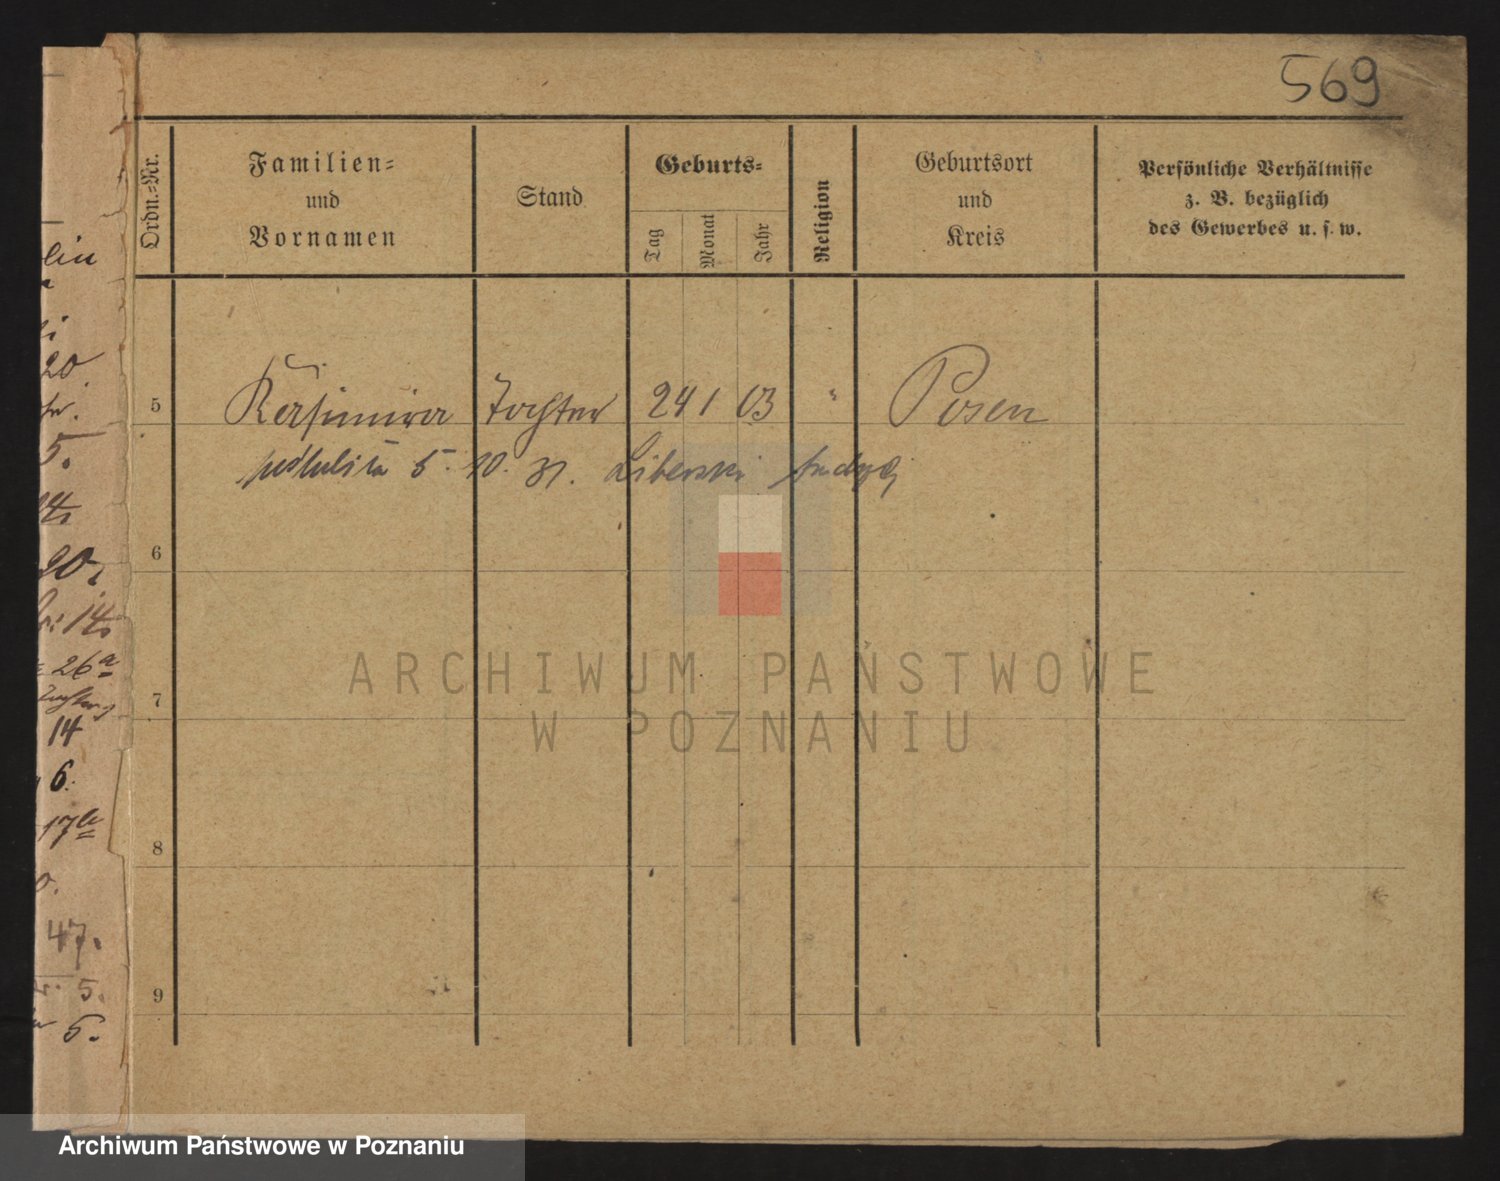 569
Ordn.-Nr.
Familien-
und
Vornamen
Stand
Geburts-
Tag
Monat
Jahr
Religion
Geburtsort
und
Kreis
Persönliche Verhältnisse
z. B. bezüglich
des Gewerbes u. s. w.
lin
20
5.
14
20.
14
26a
14
6.
17b
47.
5.
5.
5 Kasimira Tochter 24 1 03 " Posen
poślubiła 5. 10. 31. Liberski Andrzej
6
7
8
9
ARCHIWUM PAŃSTWOWE
W POZNANIU
Archiwum Państwowe w Poznaniu